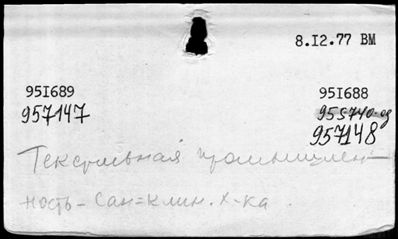 8.I2.77 ВМ
95I689
957147
95I688
955740-од
957148
Текстильная промышлен-
ность - Сан=клин. х-ка.